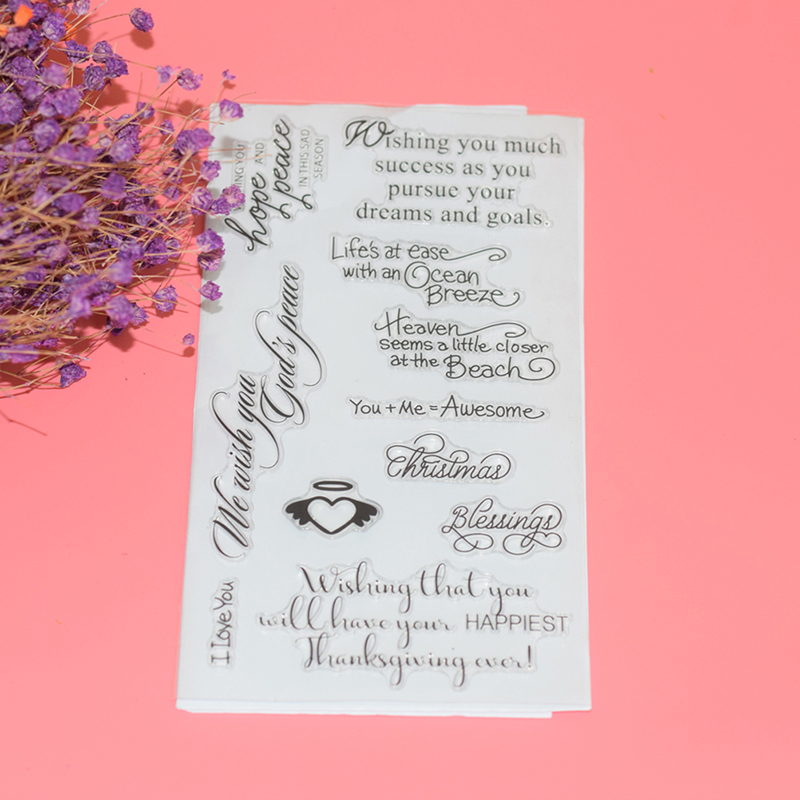 Wishing you much
success as you
pursue your
dreams and goals.
Life's at ease
with an Ocean
Breeze
Heaven
seems a little closer
at the Beach
You + Me = Awesome
Christmas
Blessings
Wishing that you
will have your HAPPIEST
Thanksgiving ever!
YOU
hope AND
peace
IN THIS SAD
SEASON
We wish you
God's peace
I Love You